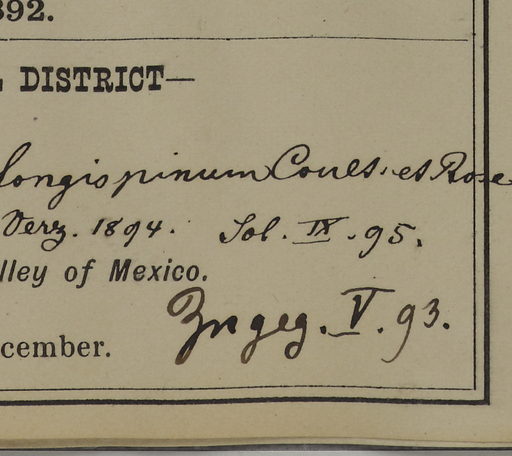 892.
DISTRICT—
longispinum Coult. et Rose
Verz. 1894. Sol. IX. 95.
lley of Mexico.
Zngeg. V. 93.
cember.